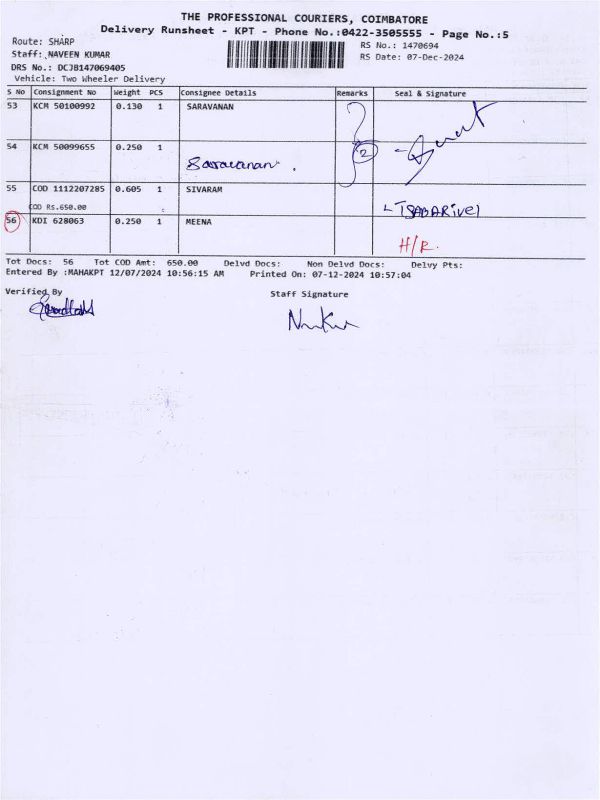 THE PROFESSIONAL COURIERS, COIMBATORE
Delivery Runsheet - KPT - Phone No.:0422-3505555 - Page No.:5
Route: SHARP
RS No.: 1470694
Staff: NAVEEN KUMAR
RS Date: 07-Dec-2024
DRS No.: DCJB147069405
Vehicle: Two Wheeler Delivery
S No Consignment No Weight PCS Consignee Details Remarks Seal & Signature
53 KCM 50100992 0.130 1 SARAVANAN
54 KCM 50099655 0.250 1
2
Saravanan.
55 COD 1112207285 0.605 1 SIVARAM
COD Rs.650.00
56 KDI 628063 0.250 1 MEENA
H/R.
Tot Docs: 56 Tot COD Amt: 650.00 Delvd Docs: Non Delvd Docs: Delvy Pts:
Entered By :MAHAKPT 12/07/2024 10:56:15 AM Printed On: 07-12-2024 10:57:04
Verified By
Staff Signature